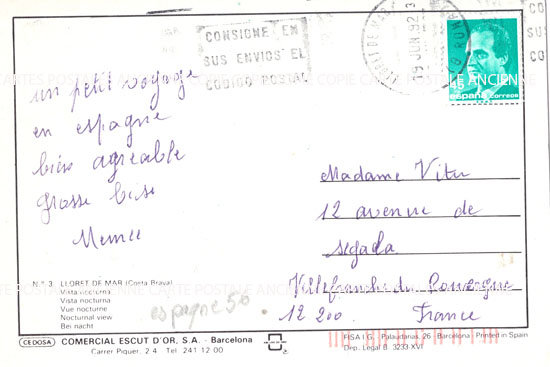 CONSIGNE EN
SUS ENVIOS EL
CODIGO POSTAL
19 JUN 92
45
españa correos
CARTES POSTALE ANCIENNE
un petit voyage
en espagne
bien agréable
grosse bise
Memee
Madame Vitu
12 avenue de
segala
Villefranche du Rouergue
12 200. France
N.º 3 LLORET DE MAR (Costa Brava)
Vista nocturna
Vista nocturna
Vue nocturne
Nocturnal view
Bei nacht
espagne 50
CEDOSA COMERCIAL ESCUT D'OR, S.A. - Barcelona
Carrer Piquer, 2-4 Tel. 241 12 00
FISA I.G. Palaudarias, 26 - Barcelona - Printed in Spain
Dep. Legal B. 3233-XVI